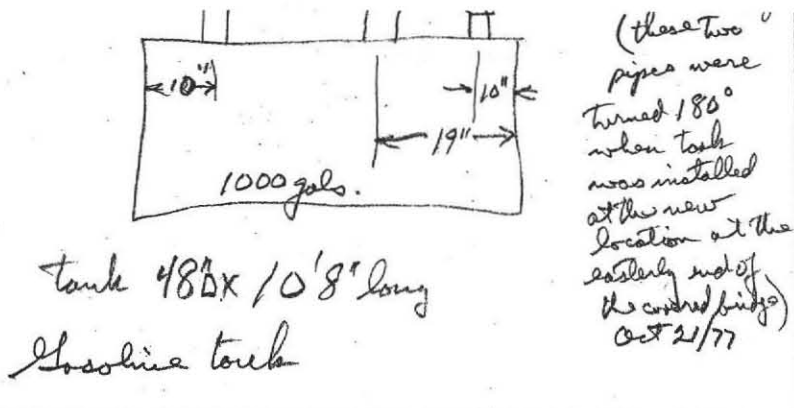 10"
10"
19"
1000 gals.
tank 48"D x 10'8" long
Gasoline tank
(these two
pipes were
turned 180°
when tank
was installed
at the new
location at the
easterly end of
the covered bridge)
Oct 21/77